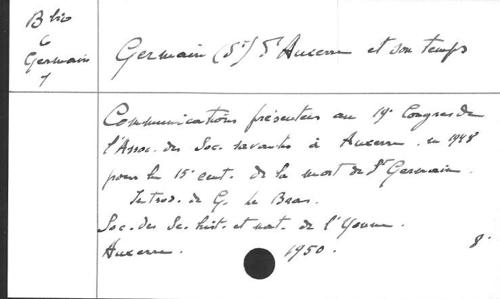 B bio
6
Germain
7
Germain (St) d'Auxerre et son temps
Communications présentées au 19e Congrès de
l'Assoc. des Soc. savantes à Auxerre en 1948
pour le 15e cent. de la mort de St Germain.
Introd. de G. Le Bras.
Soc. des Sc. hist. et nat. de l'Yonne.
Auxerre. 1950. 8°